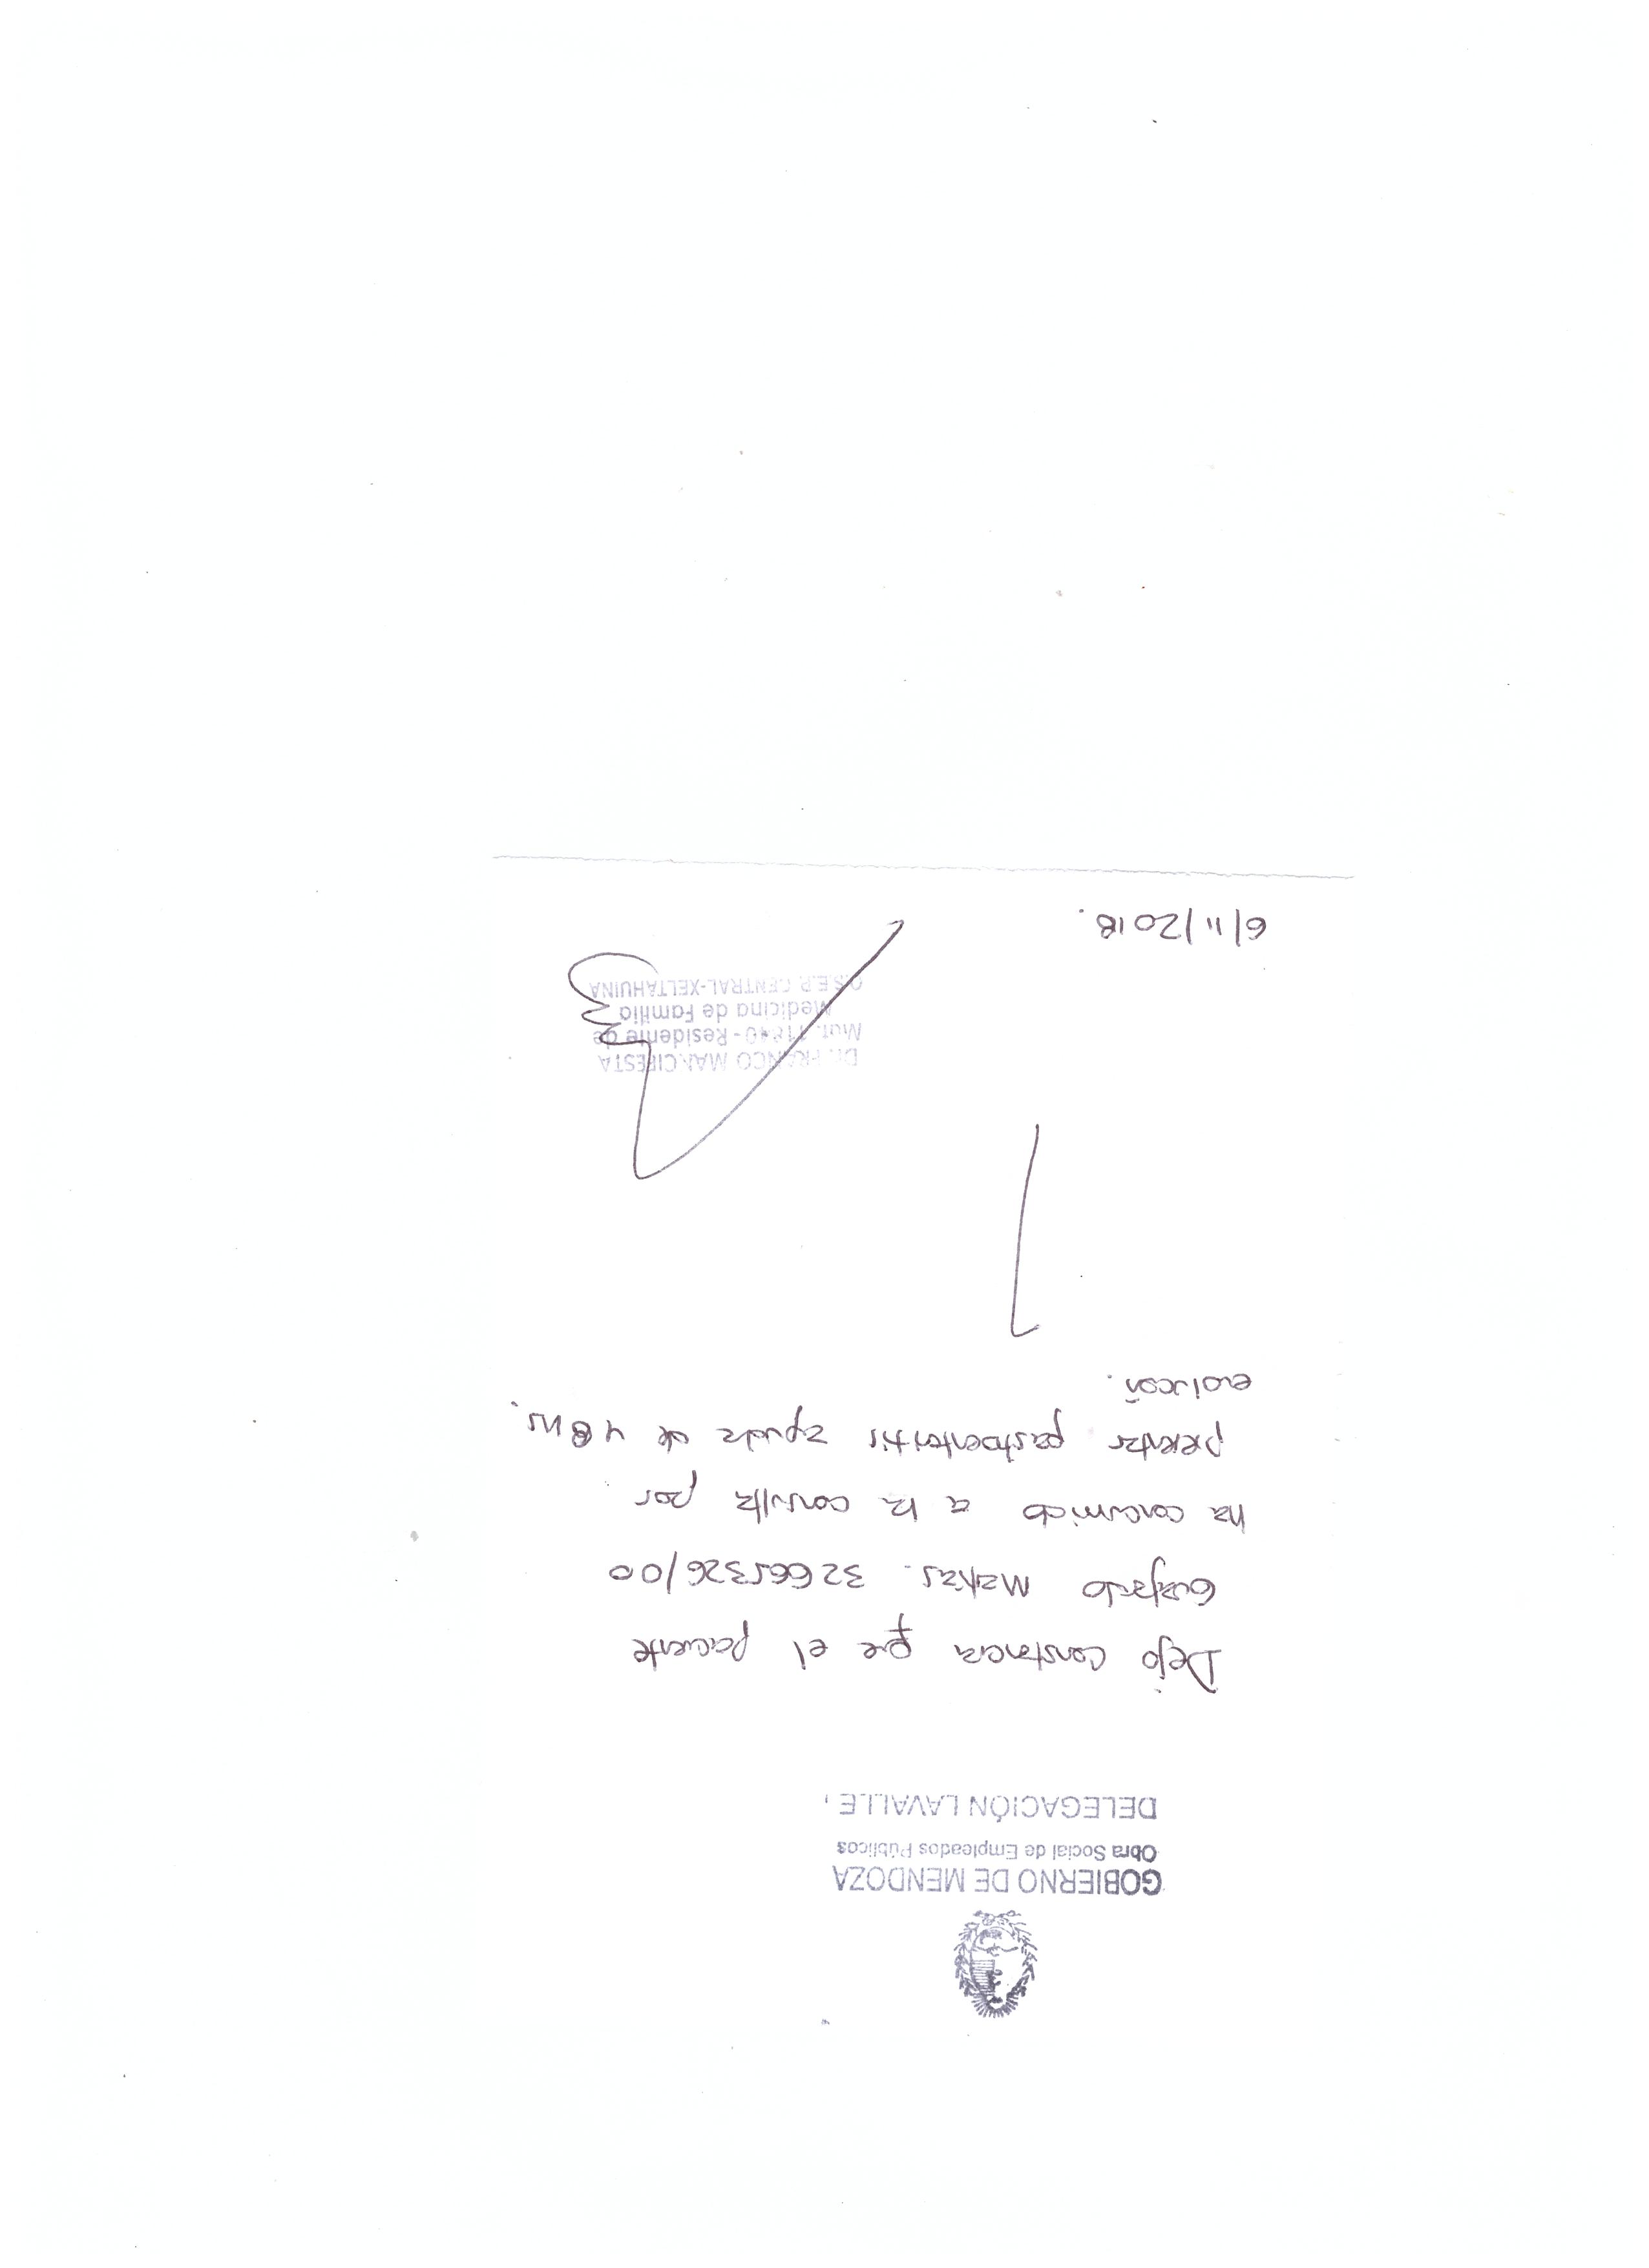 GOBIERNO DE MENDOZA
Obra Social de Empleados Públicos
DELEGACIÓN LAVALLE
Dejo constancia que el paciente
Guajardo Matías. 32665326/00
ha concurrido a la consulta por
presentar gastroenteritis aguda de 48 hs.
evolución.
Dr. FRANCO MAN CIFESTA
Mat. - Residente de
Medicina de Familia
O.S.E.P. CENTRAL-XELTAHUINA
6/11/2018.